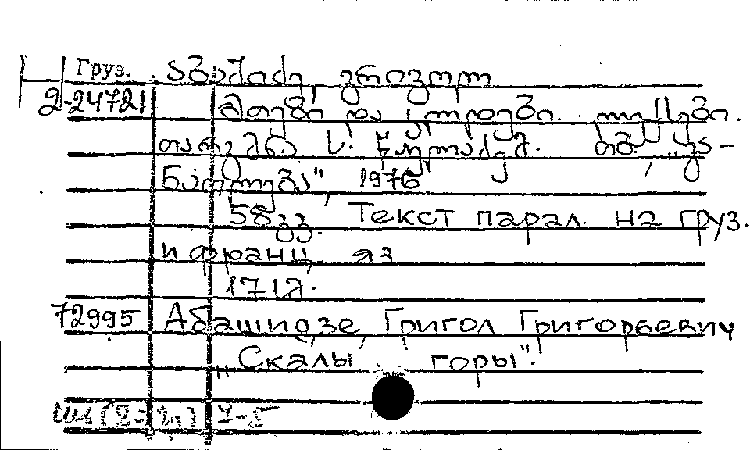 Груз. აბაშიძე, გრიგოლ
2-24721 მთები და კლდეები. ლექსები.
თარგმნა ს. წულაძემ. თბ., „გა-
ნათლება", 1976
58გვ. Текст парал. на груз.
и франц. яз
171გ.
72995 Абашидзе, Григол Григорьевич
„Скалы горы".
7-5